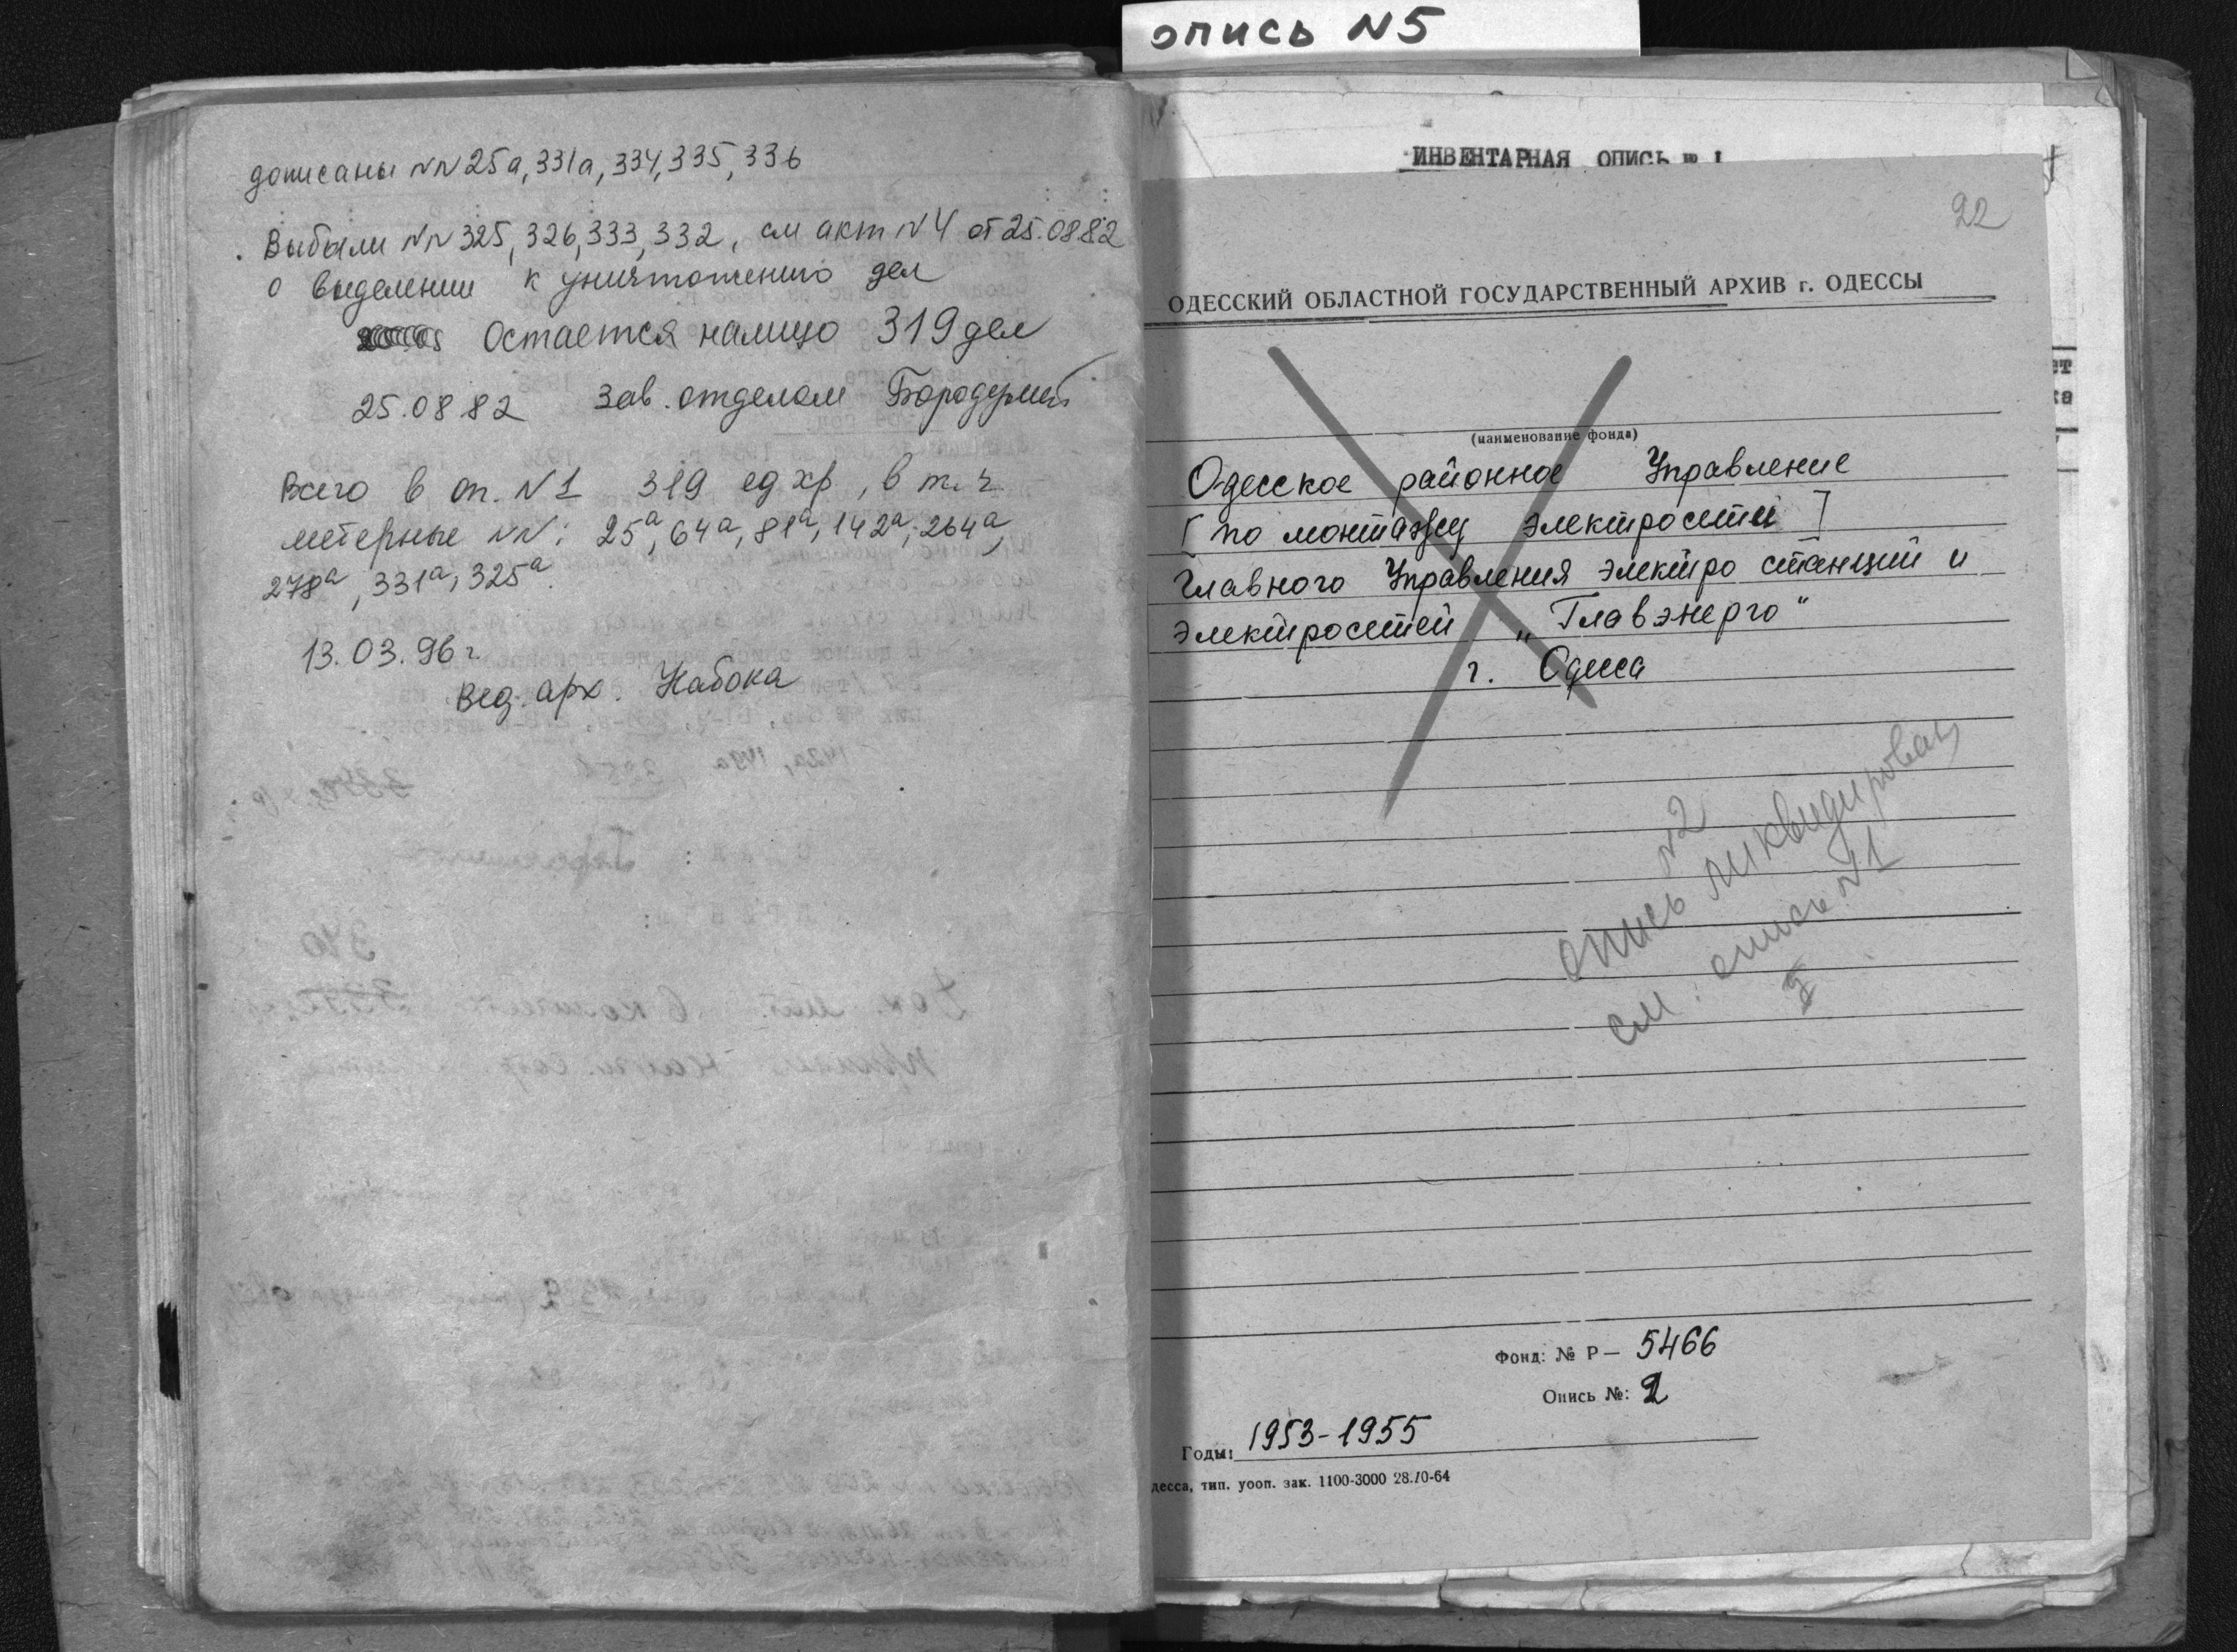 опись N5
дописаны NN 25а, 331а, 334, 335, 336
Выбыли NN 325, 326, 333, 332, см акт N 4 от 25.08.82
о выделении к уничтожению дел
Остается налицо 319 дел
25.08.82 Зав. отделом
Всего в оп. N1 319 ед хр, в т. ч
литерные NN: 25а, 64а, 81а, 142а, 264а,
278а, 331а, 325а.
13.03.96 г.
Вед. арх. Набока
ИНВЕНТАРНАЯ ОПИСЬ № 1
22
ОДЕССКИЙ ОБЛАСТНОЙ ГОСУДАРСТВЕННЫЙ АРХИВ г. ОДЕССЫ
(наименование фонда)
Одесское районное Управление
[по монтажу электросети]
Главного Управления электро станций и
электросетей „Главэнерго"
г. Одесса
N2
опись ликвидирована
см. опись N1
Фонд: № Р— 5466
Опись №: 2
Годы: 1953-1955
десса, тип. уооп. зак. 1100-3000 28.10-64